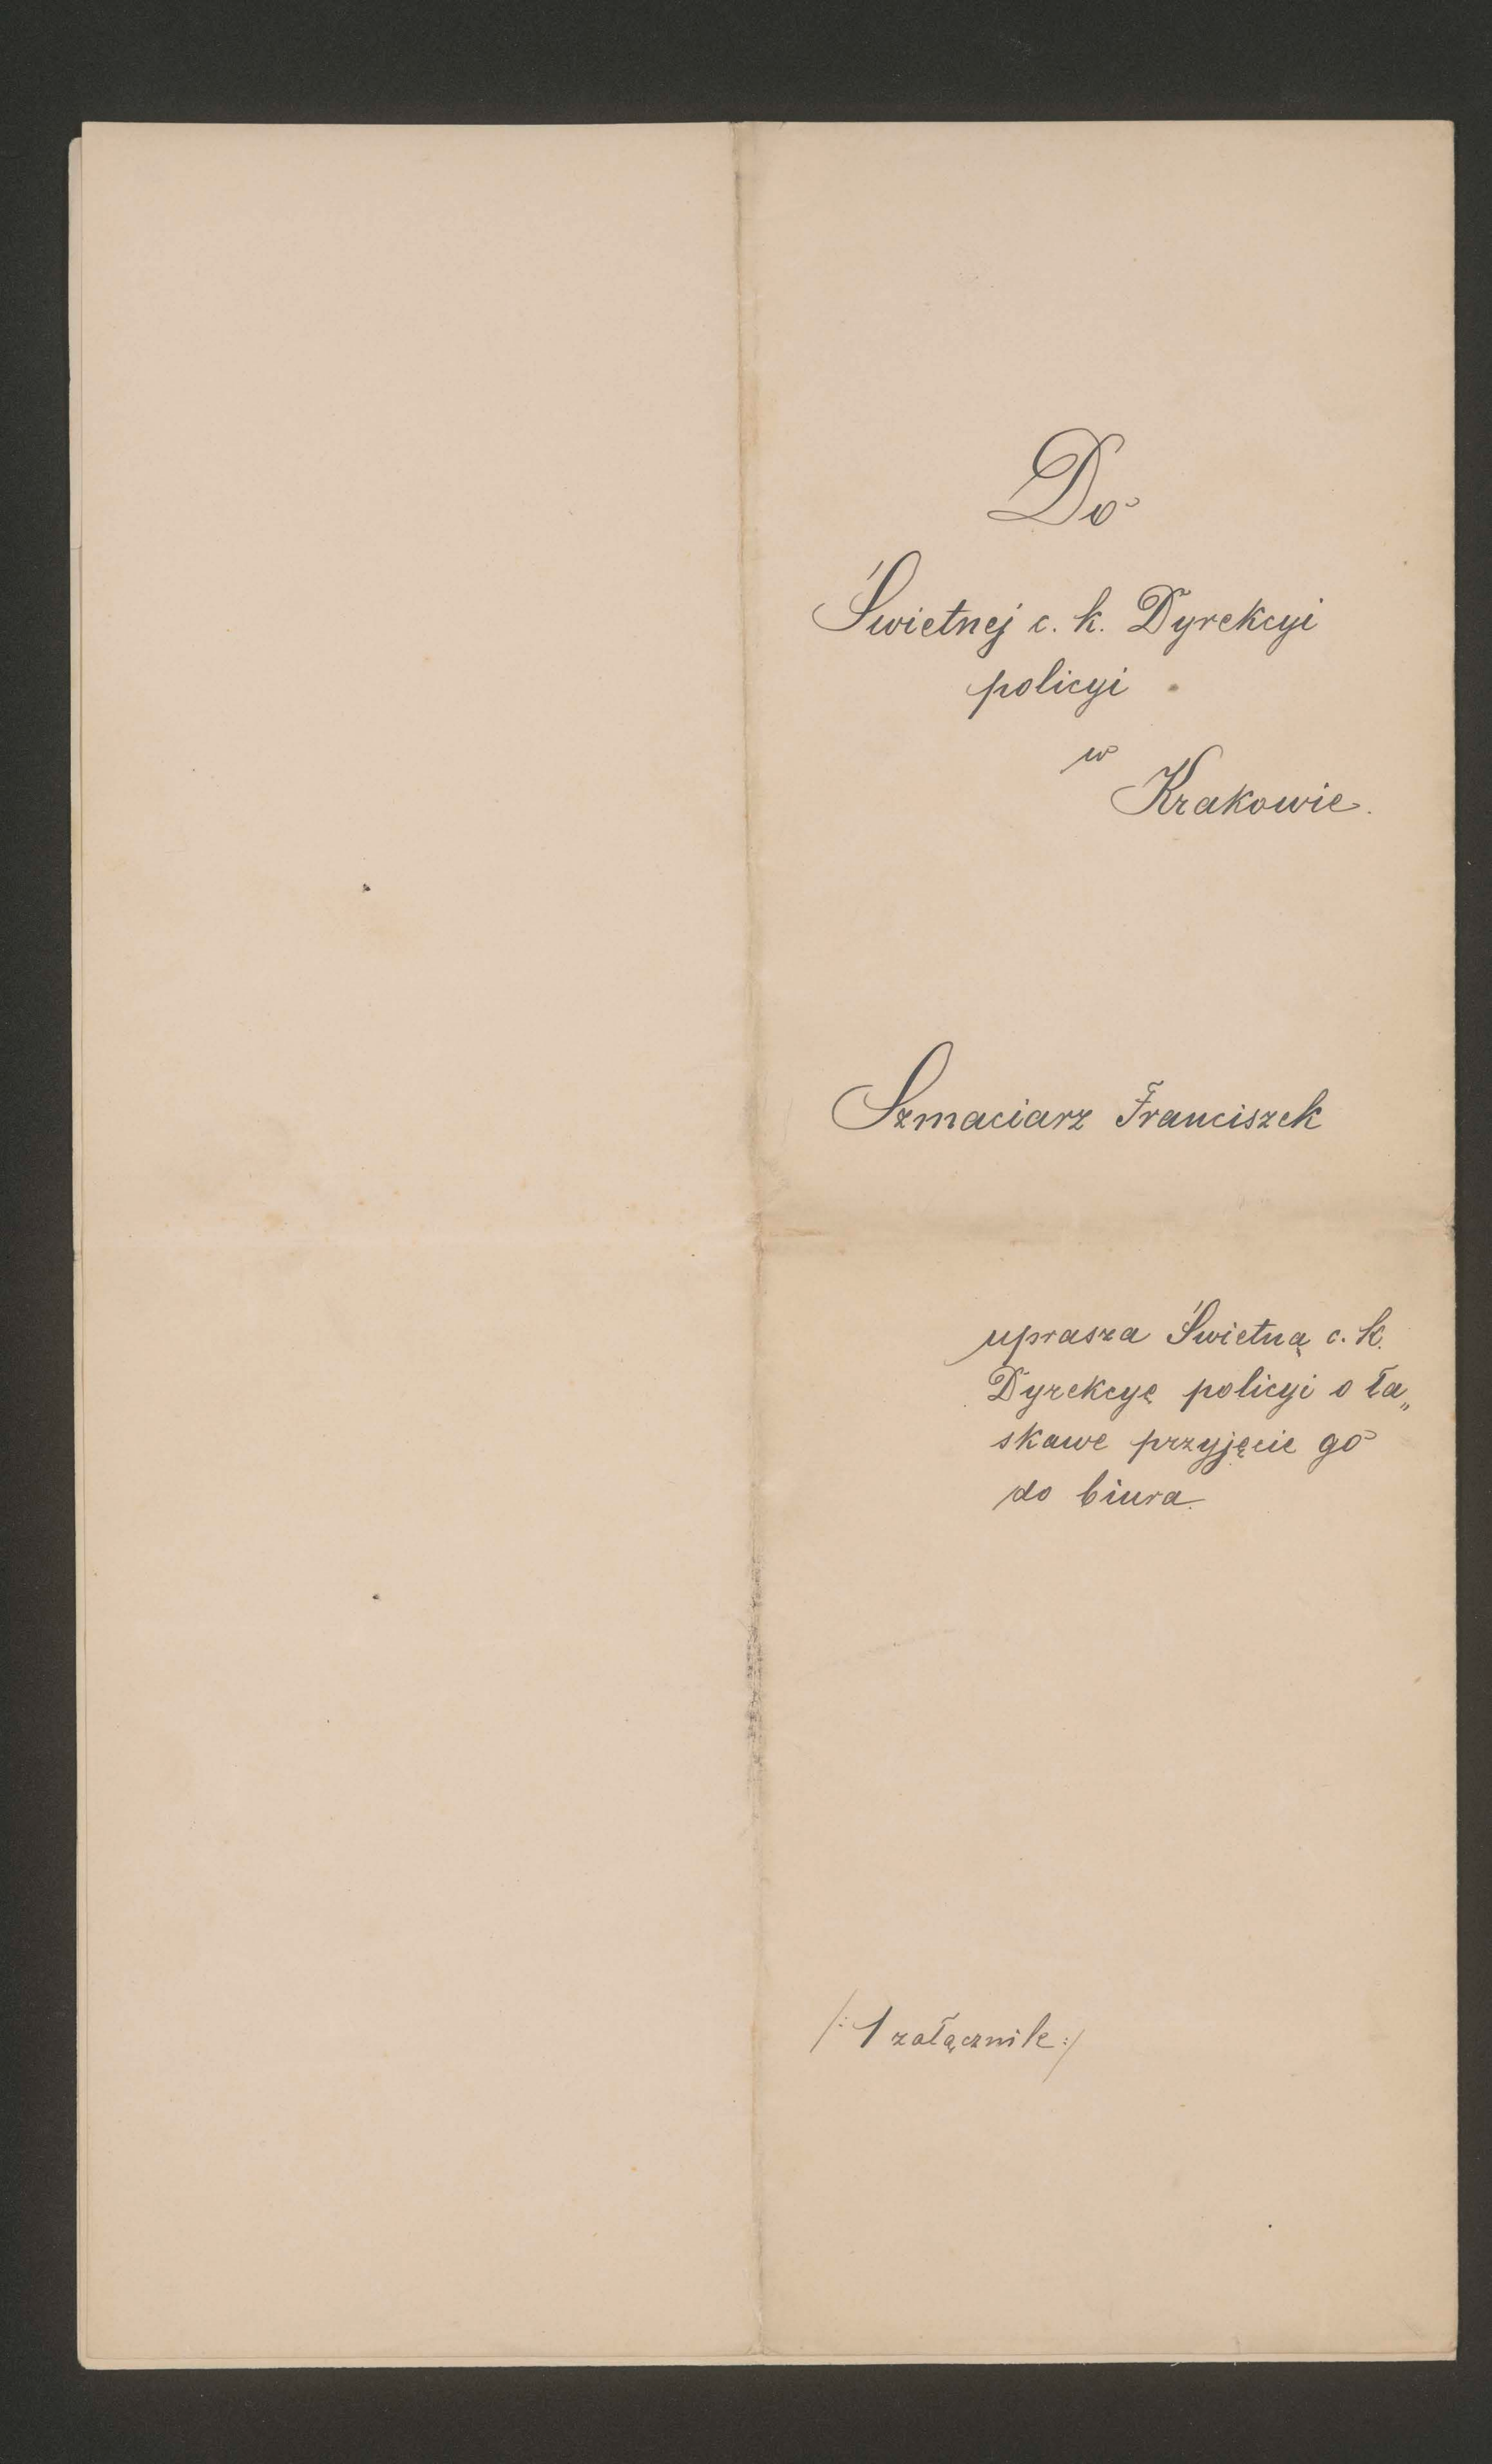 Do
Świetnej c. k. Dyrekcyi
policyi
w
Krakowie.
Szmaciarz Franciszek
uprasza Świetną c. k.
Dyrekcyę policyi o ła„
skawe przyjęcie go
do biura.
/: 1 załącznik :/